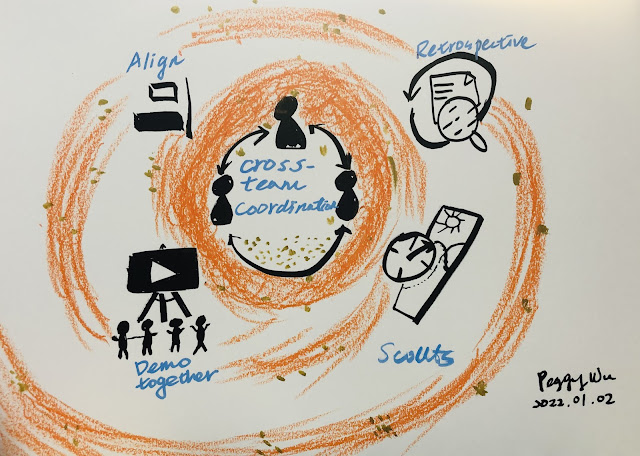 Align
Retrospective
cross-
team
coordination
Demo
together
Scouts
Peggy Wu
2022.01.02